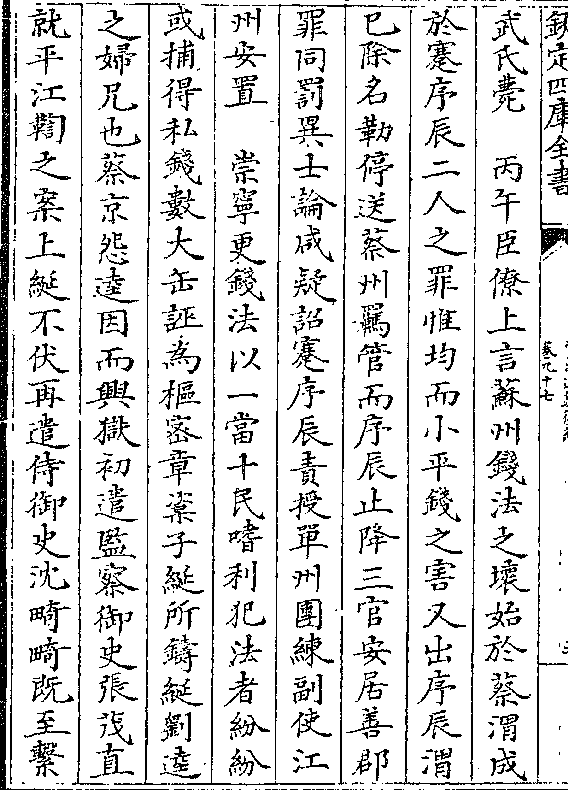 欽定四庫全書
卷九十七
武氏薨　丙午臣僚上言蘇州錢法之壞始於蔡渭成
於蹇序辰二人之罪惟均而小平錢之害又出序辰渭
已除名勒停送蔡州羈管而序辰止降三官安居善郡
罪同罰異士論咸疑詔蹇序辰責授單州團練副使江
州安置　崇寧更錢法以一當十民嗜利犯法者紛紛
或捕得私錢數大缶誣為樞密章楶子綖所鑄綖劉逵
之婦兄也蔡京怨逵因而興獄初遣監察御史張茂直
就平江鞫之案上綖不伏再遣侍御史沈畸畸既至繫